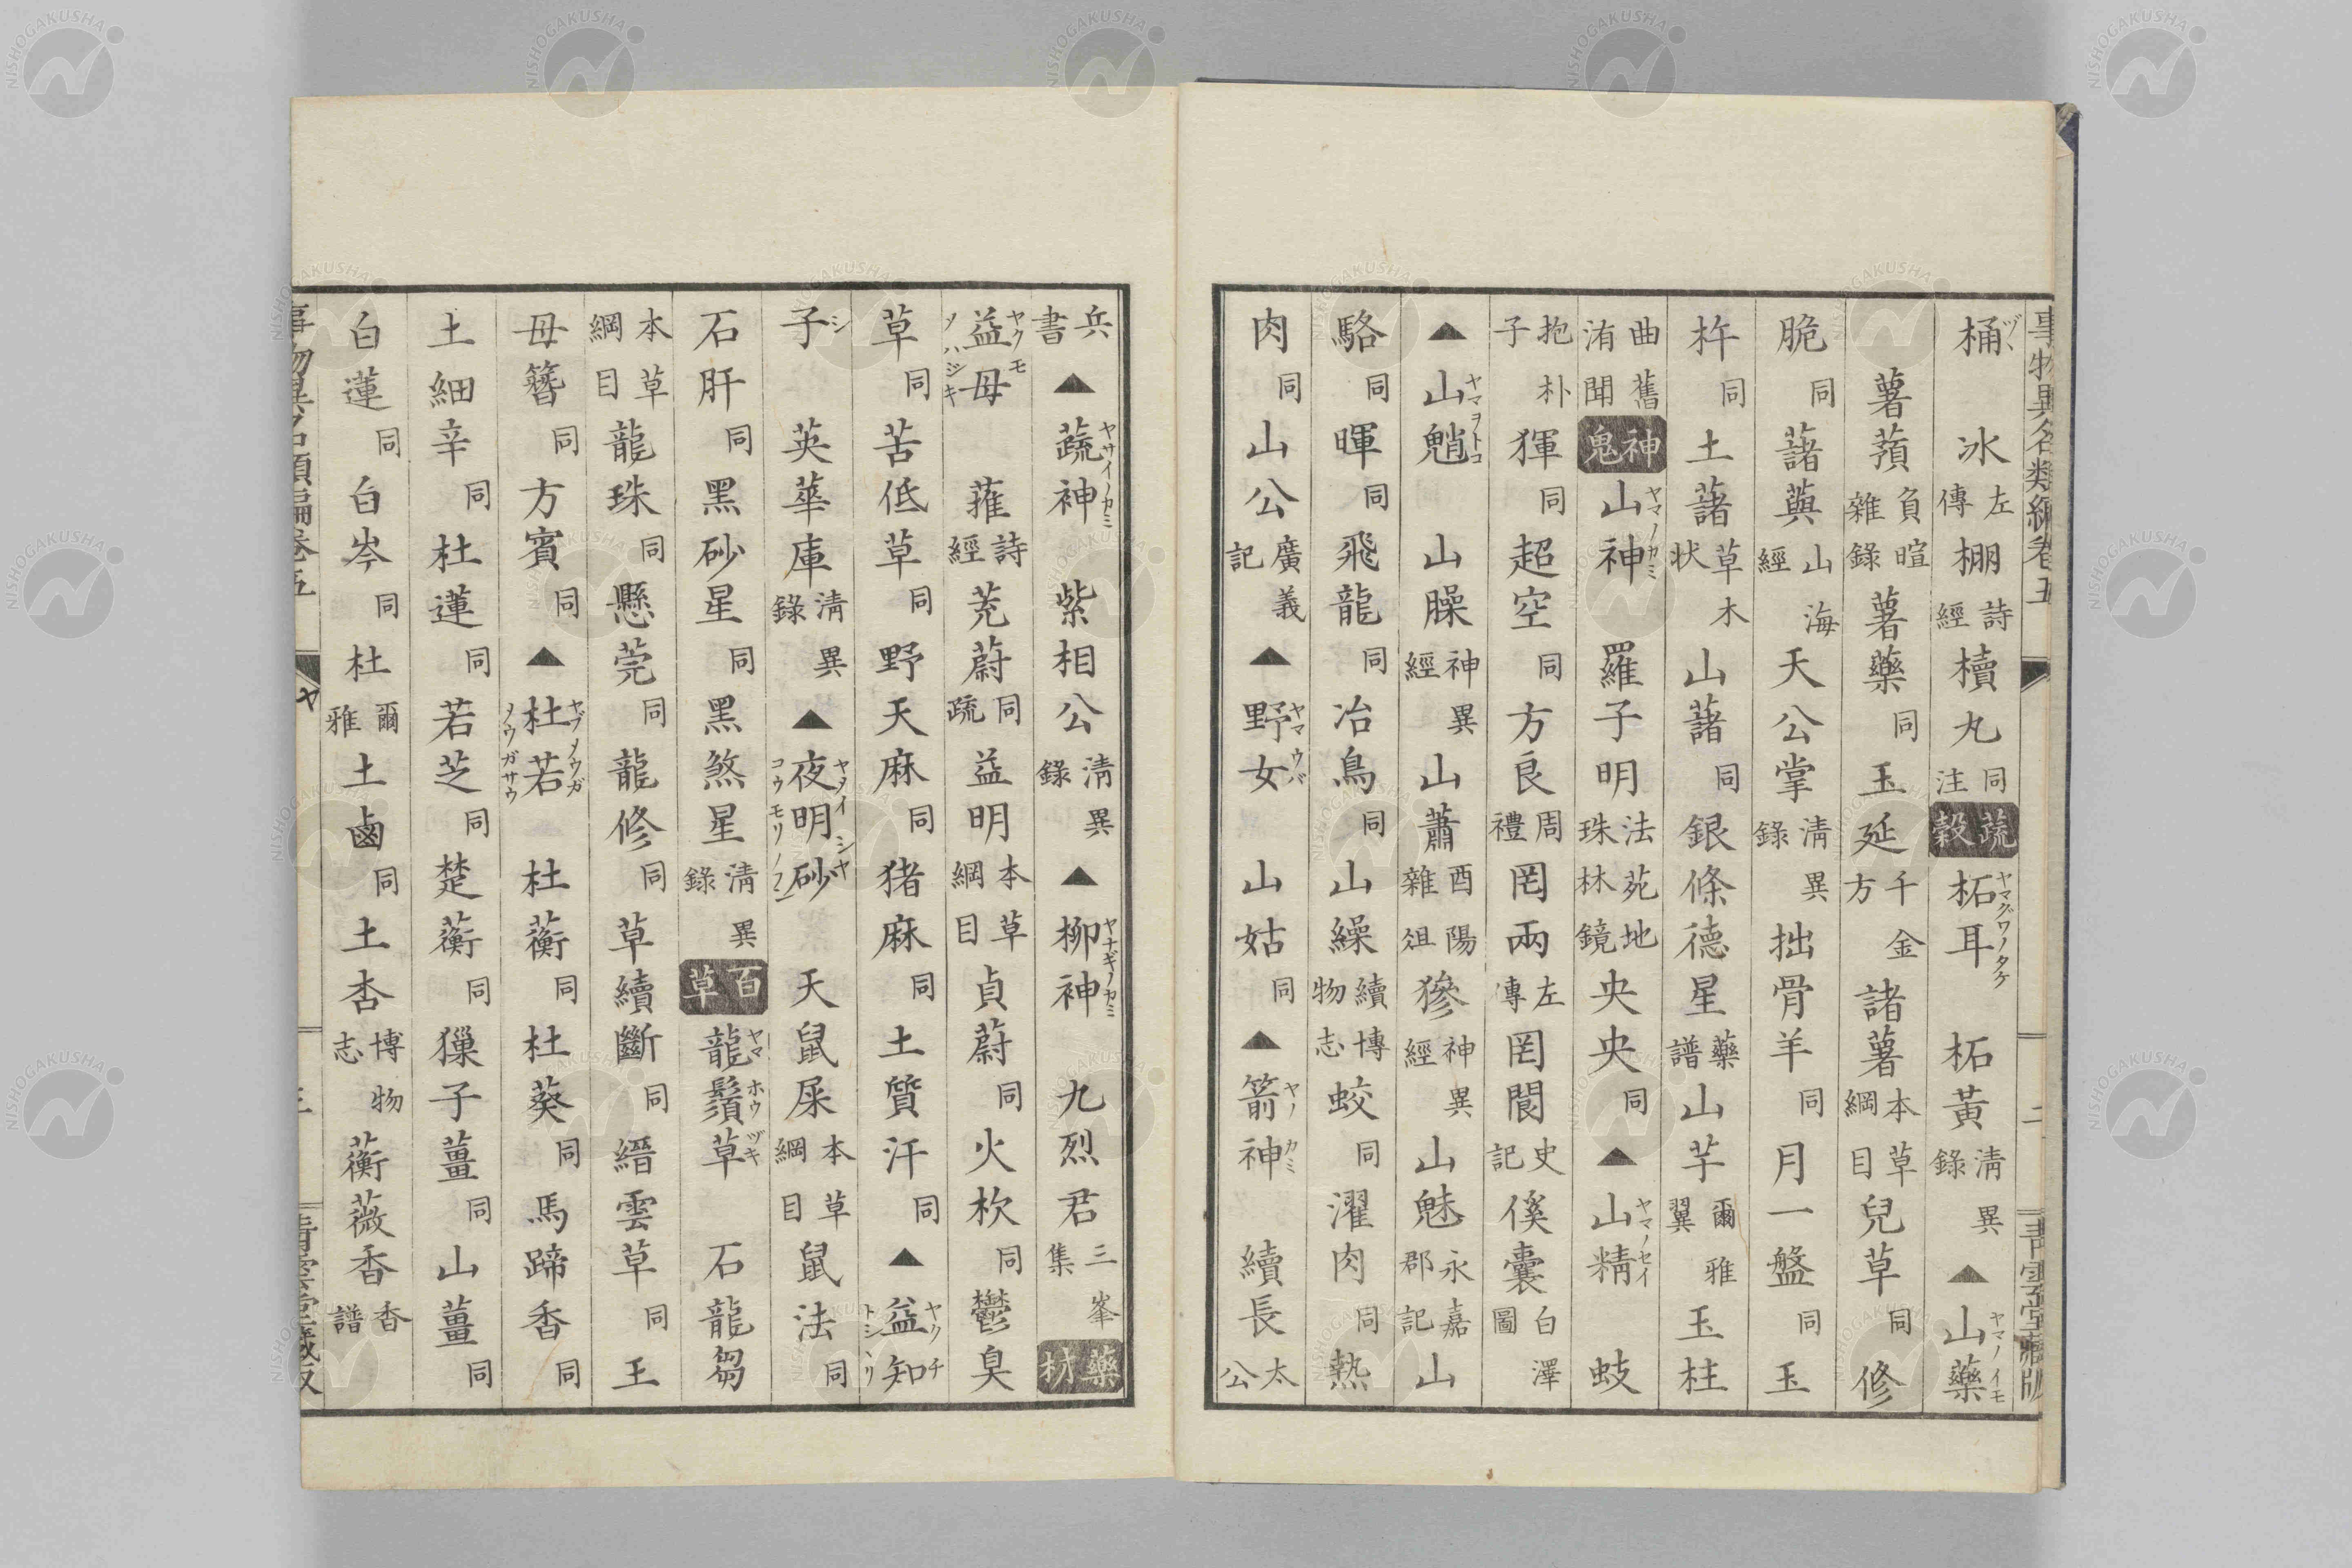 事物異名類編卷五 二 青雲堂藏版
桶ヅヽ 冰左傳 棚詩經 櫝丸同注 蔬穀 柘耳ヤマグワノタケ 柘黃清異錄 ▲山藥ヤマノイモ
薯蕷負暄雜錄 薯藥同 玉延千金方 諸薯本草綱目 兒草同 修
脆同 藷藇山海經 天公掌清異錄 拙骨羊同 月一盤同 玉
杵同 土藷草木状 山藷同 銀條德星藥譜 山芋爾雅翼 玉柱
曲洧舊聞 神鬼 山神ヤマノカミ 羅子明法苑珠林 央央地鏡同 ▲山精ヤマノセイ 蚑
抱朴子 㺔同 超空同 方良周禮 罔兩左傳 罔閬史記 傒囊白澤圖
▲山魈ヤマヲトコ 山臊神異經 山蕭酉陽雜俎 㺑神異經 山魅永嘉郡記 山
駱同 暉同 飛龍同 冶鳥同 山繰續博物志 蛟同 濯肉同 熱
肉同 山公廣義記 ▲野女ヤマウバ 山姑同 ▲箭神ヤノカミ 續長太公
兵書 ▲蔬神ヤサイノカミ 紫相公清異錄 ▲柳神ヤナギノカミ 九烈君三峯集 藥材
益母ヤクモノハジキ 蓷詩經 茺蔚同疏 益明本草綱目 貞蔚同 火杴同 鬱臭
草同 苦低草同 野天麻同 猪麻同 土質汗同 ▲益知ヤクチトミヽリ
子シ 英華庫清異錄 ▲夜明砂ヤメイシヤコウモリノフン 天鼠屎本草綱目 鼠法同
石肝同 黑砂星同 黑煞星清異錄 百草 龍鬚草ヤマホウヅキ 石龍芻
本草綱目 龍珠同 懸莞同 龍修同 草續斷同 縉雲草同 王
母簪同 方賓同 ▲杜若ヤブノウガノウガサウ 杜蘅同 杜葵同 馬蹄香同
土細辛同 杜蓮同 若芝同 楚蘅同 獵子薑同 山薑同
白蓮同 白岑同 杜爾雅 土鹵同 土杏博物志 蘅薇香香譜
事物異名類編卷五 ヤ 三 青雲堂藏版